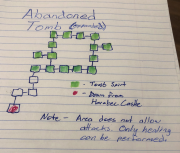 Abandoned
Tomb
- Tomb Spirit
- Demon From
Note - Area does not allow
attacks. Only healing
can be performed.